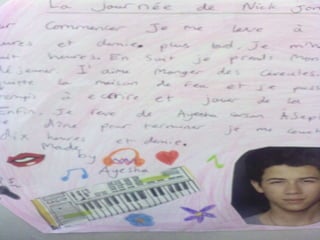 La Journée de Nick Jon
Commencer Je me lève à
heures et demie. plus tad. Je m'h
huit heures. En Suit je prends mon
déjeuner. J'aime manger des cereales.
la maison de feu et je pass
temps à ecrire et jouer de la
Enfin. Je reve de Ayesha
dîne pour terminer je me couche
dix heures et demie.
Made
by
Ayesha